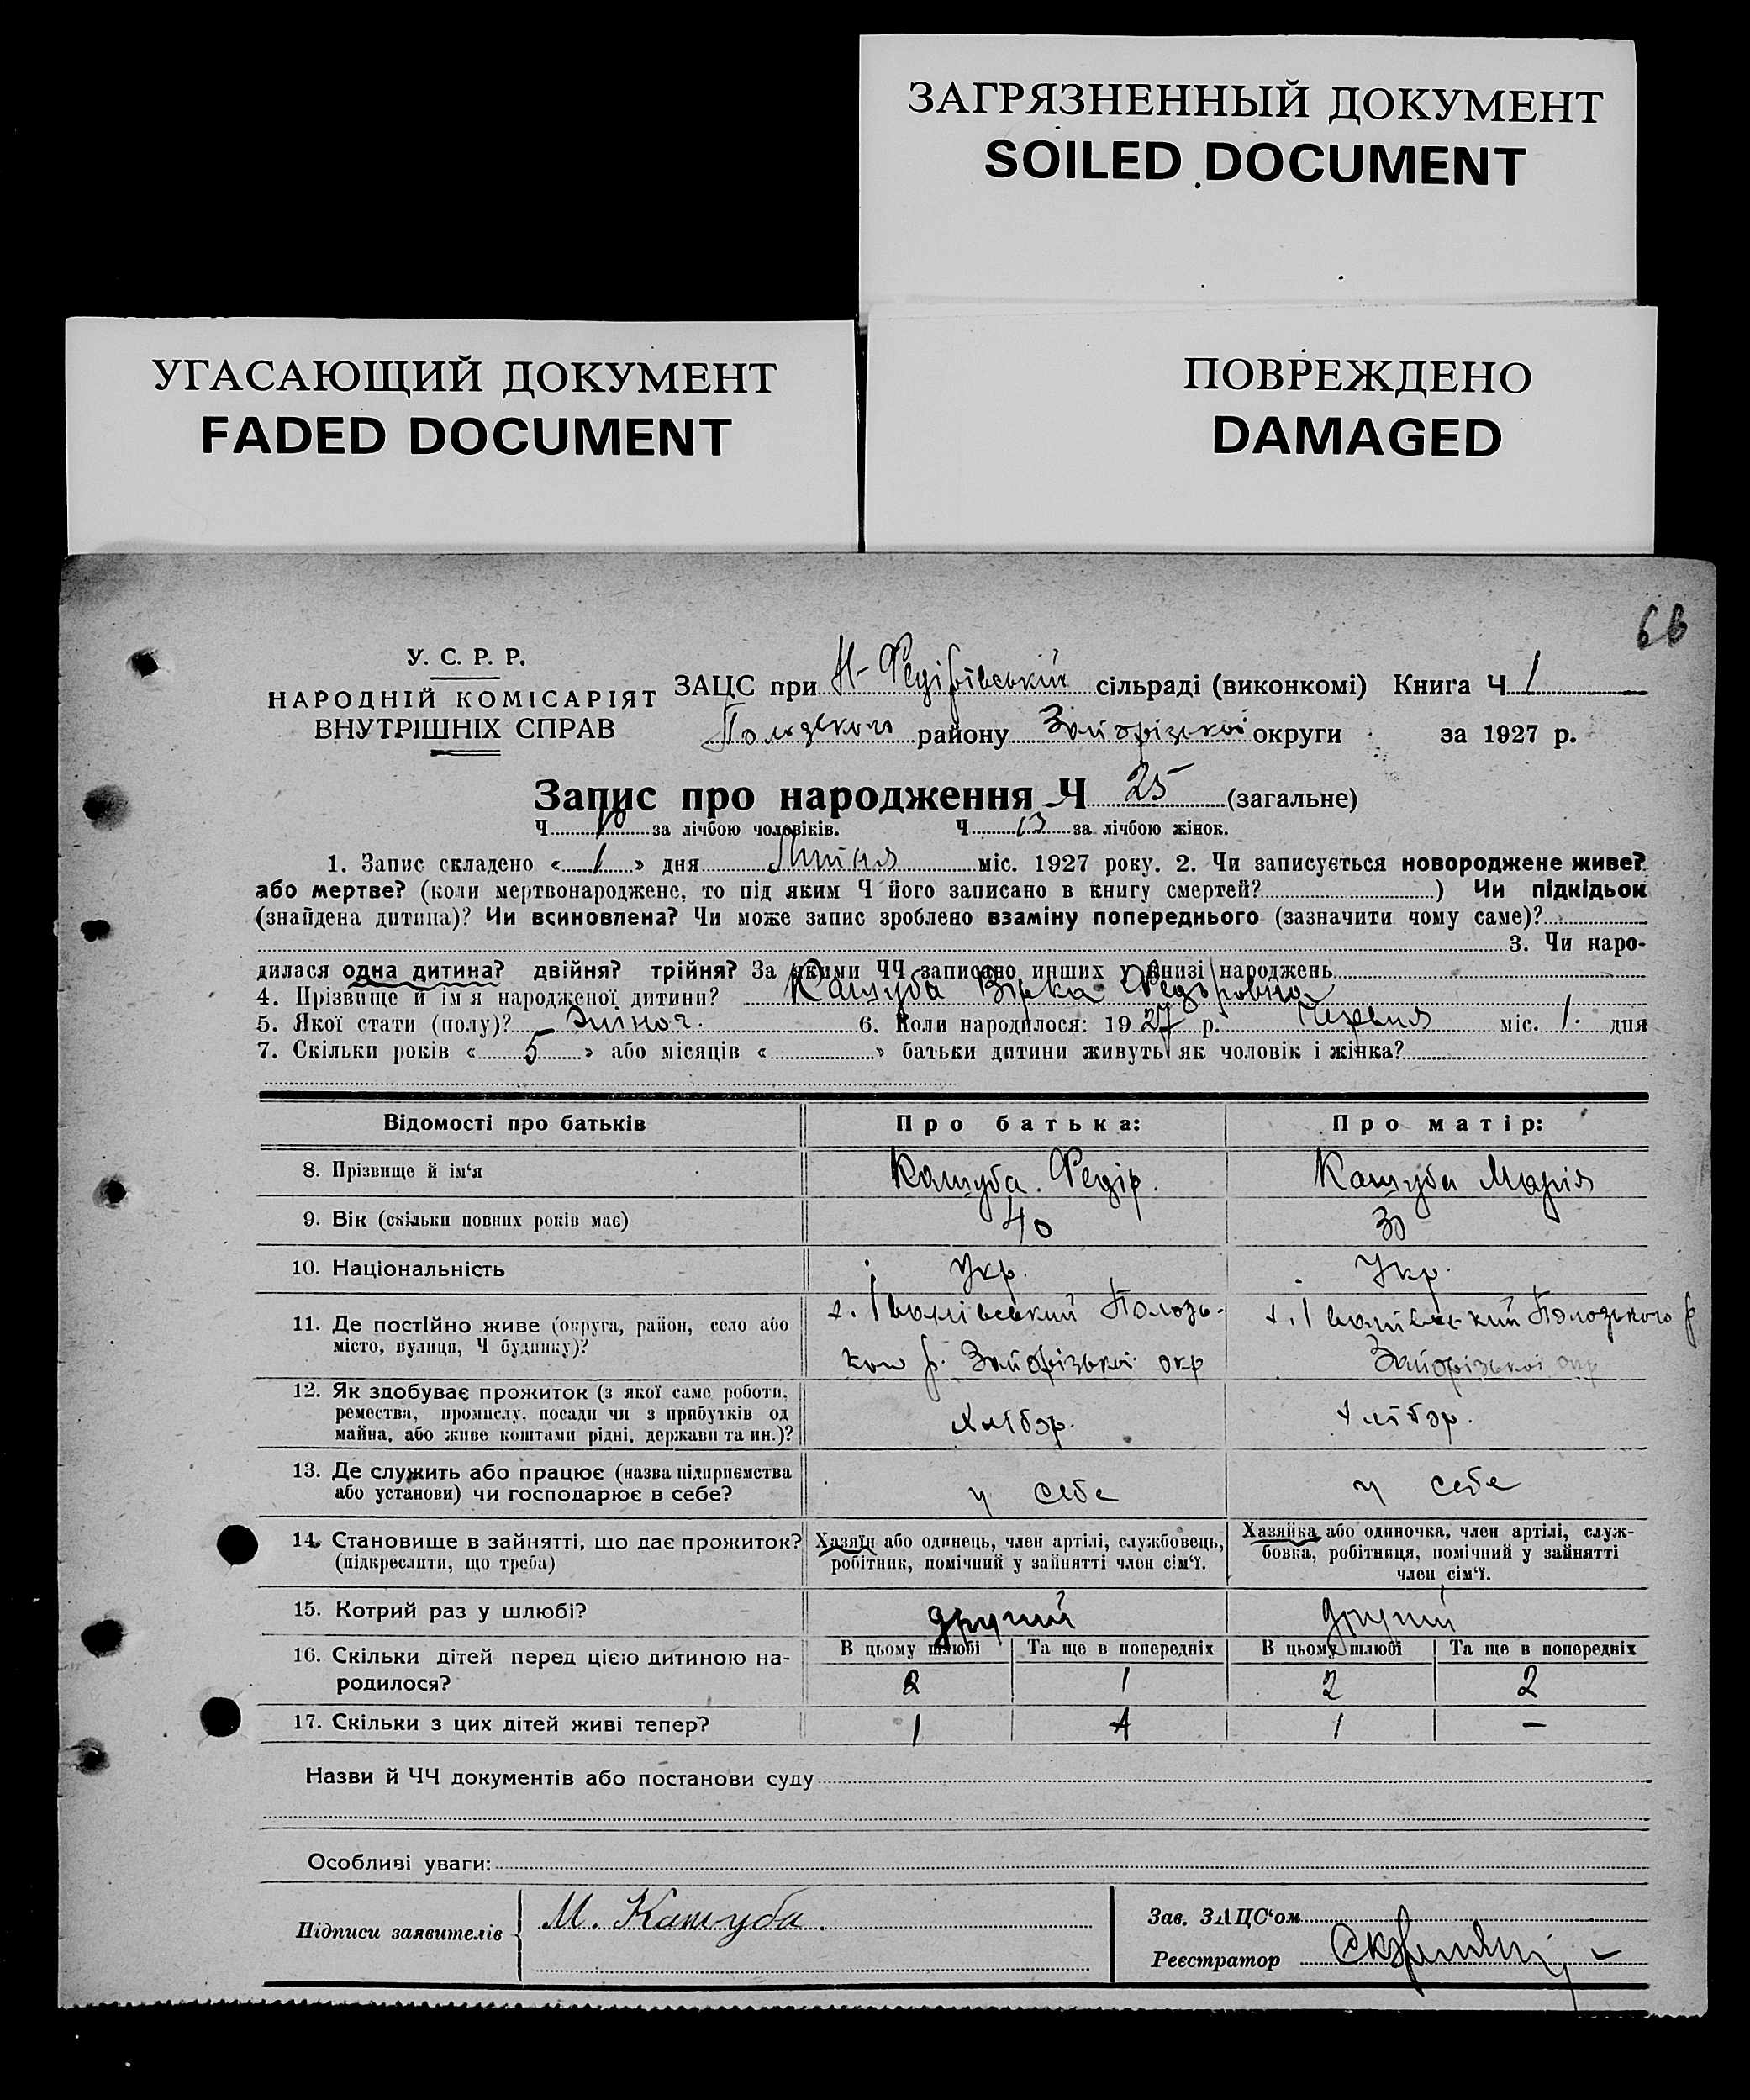 ЗАГРЯЗНЕННЫЙ ДОКУМЕНТ
SOILED DOCUMENT
УГАСАЮЩИЙ ДОКУМЕНТ
FADED DOCUMENT
ПОВРЕЖДЕНО
DAMAGED
У. С. Р. Р.
НАРОДНІЙ КОМІСАРІЯТ
ВНУТРІШНІХ СПРАВ
ЗАЦС при Н-Федірівській сільраді (виконкомі) Книга Ч 1
району Запорізької округи за 1927 р.
Запис про народження Ч 25 (загальне)
Ч за лічбою чоловіків. Ч 13 за лічбою жінок.
1. Запис складено « 1 » дня Липня міс. 1927 року. 2. Чи записується новороджене живе?
або мертве? (коли мертвонароджене, то під яким Ч його записано в книгу смертей? ) Чи підкідьок
(знайдена дитина)? Чи всиновлена? Чи може запис зроблено взаміну попереднього (зазначити чому саме)?
3. Чи наро-
дилася одна дитина? двійня? трійня? За якими ЧЧ записано инших у книзі народжень
4. Прізвище й ім'я народженої дитини? Кашуба Вірка Федоровна
5. Якої стати (полу)? жіноч. 6. Коли народилося: 1927 р. Червня міс. 1. дня
7. Скільки років « 5 » або місяців « » батьки дитини живуть як чоловік і жінка?
Відомості про батьків Про батька: Про матір:
8. Прізвище й ім'я Кашуба. Федір. Кашуба Марія
9. Вік (скільки повних років має) 40 30
10. Національність Укр. Укр.
11. Де постійно живе (округа, район, село або місто, вулиця, Ч будинку)?
х. Іванівський Полозь-
кого р. Запорізької окр
х. Іванівський Полозького р
Запорізької окр
12. Як здобуває прожиток (з якої саме роботи,
ремества, промислу, посади чи з прибутків од
майна, або живе коштами рідні, держави та ин.)?
хлібор. хлібор.
13. Де служить або працює (назва підприємства
або установи) чи господарює в себе?
у себе у себе
14. Становище в зайнятті, що дає прожиток?
(підкреслити, що треба)
Хазяїн або одинець, член артілі, службовець,
робітник, помічний у зайнятті член сім'ї.
Хазяйка або одиночка, член артілі, служ-
бовка, робітниця, помічний у зайнятті
член сім'ї.
15. Котрий раз у шлюбі? другий другий
16. Скільки дітей перед цією дитиною на-
родилося?
В цьому шлюбі Та ще в попередніх В цьому шлюбі Та ще в попередніх
2 1 2 2
17. Скільки з цих дітей живі тепер? 1 1 –
Назви й ЧЧ документів або постанови суду
Особливі уваги:
Підписи заявителів М. Кашуба.
Зав. ЗАЦС'ом
Реєстратор